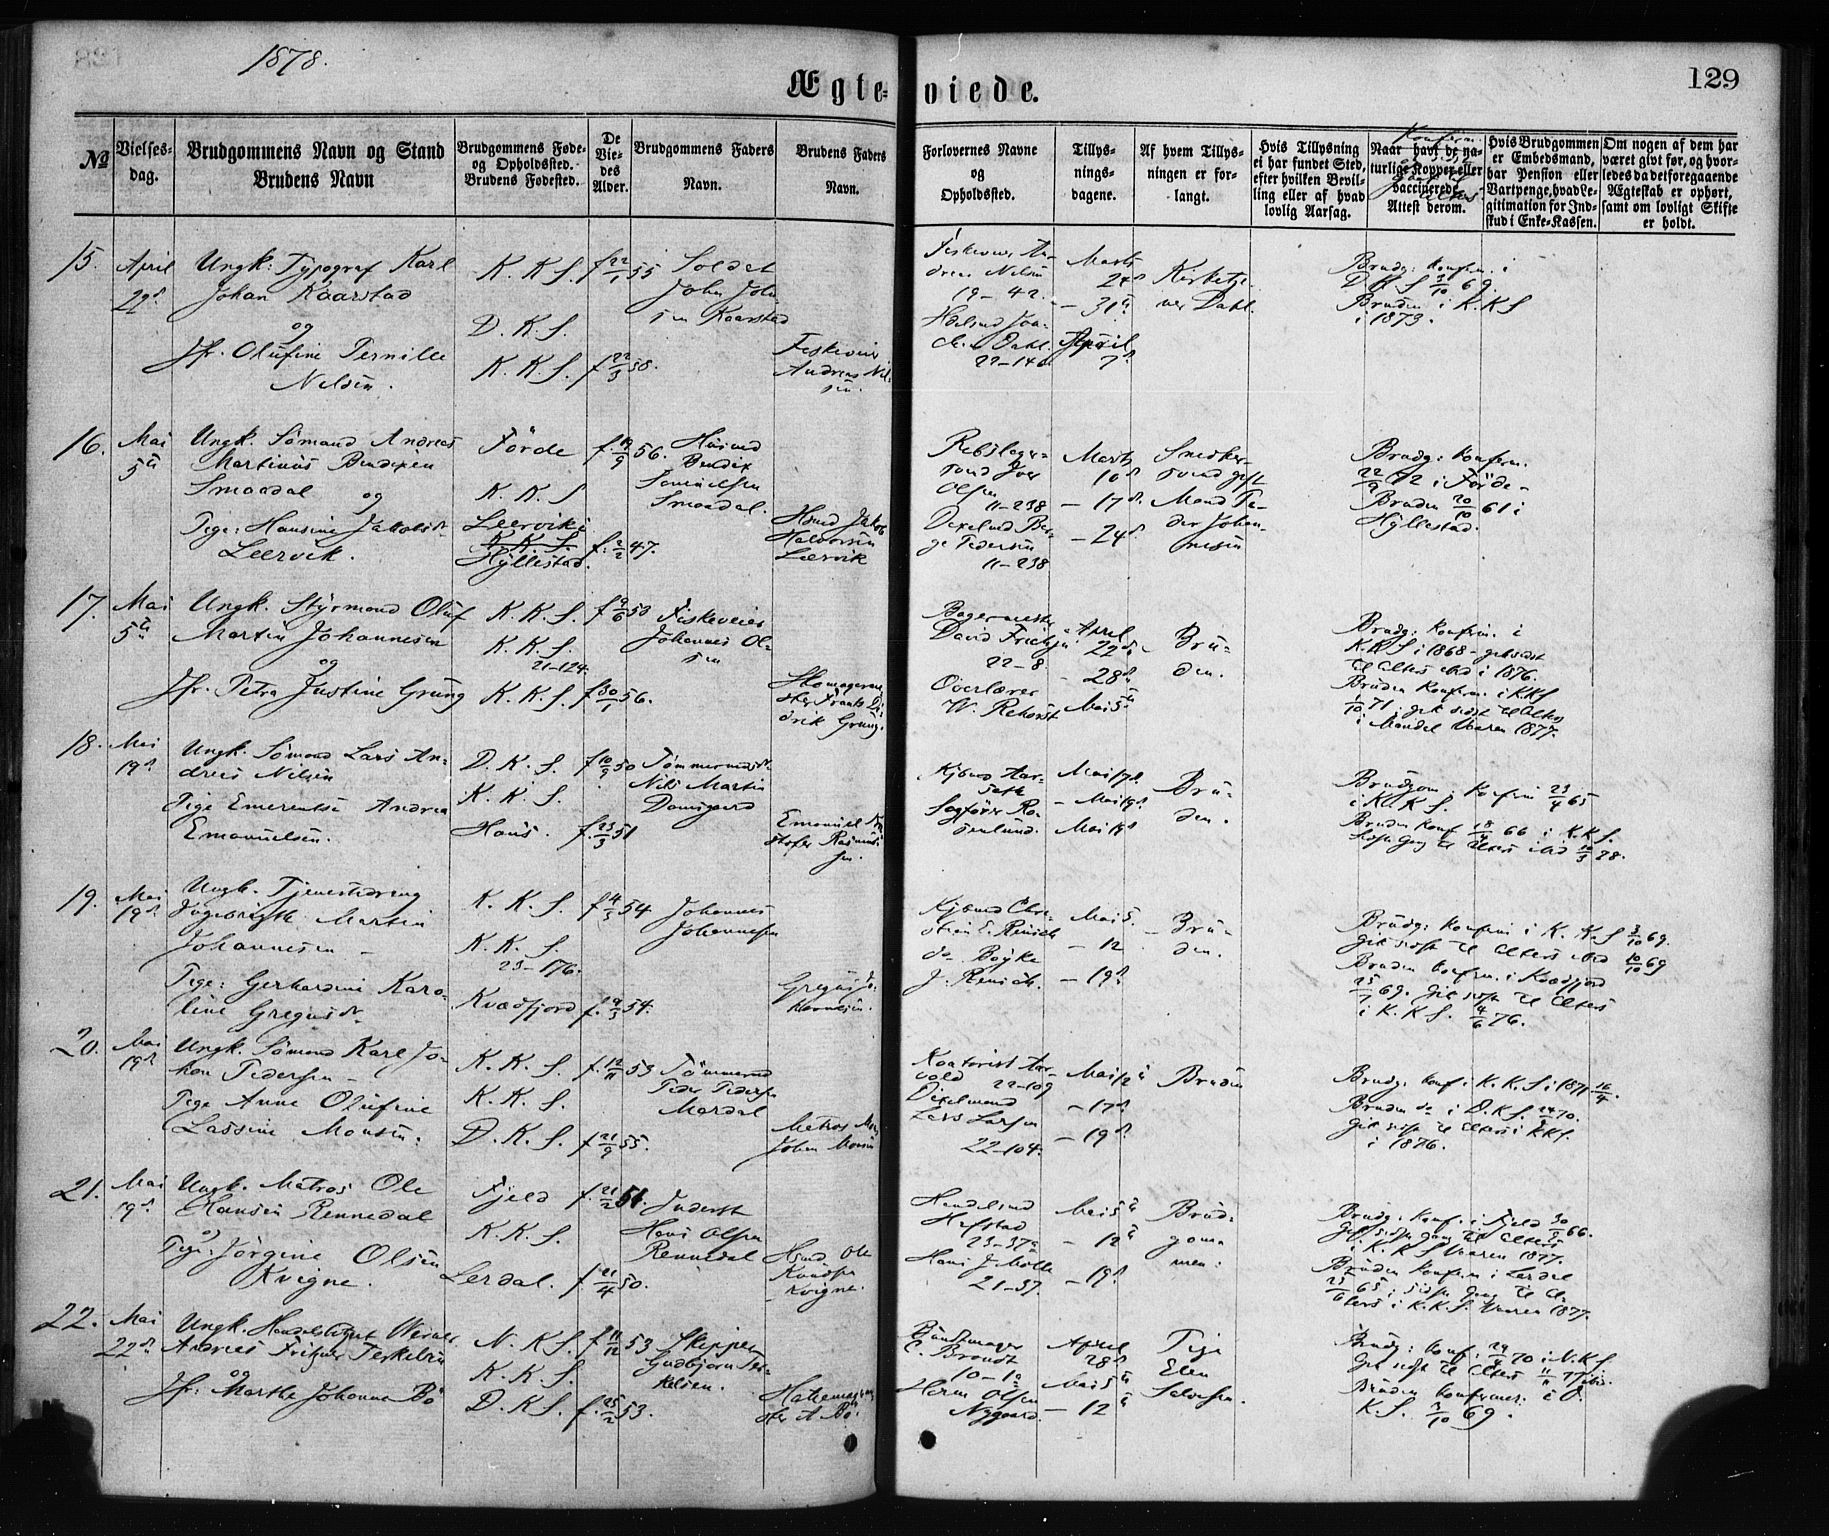 1878.
129
Ægte-
viede.
No
Vielses-
dag.
Brudgommens Navn og Stand
Brudens Navn
Brudgommens Føde-
og Opholdssted.
Brudens Fødested.
De
Vie-
des
Alder.
Brudgommens Faders
Navn.
Brudens Faders
Navn.
Forlovernes Navne
og
Opholdssted.
Tillys-
nings-
dagene.
Af hvem Tillys-
ningen er for-
langt.
Hvis Tillysning
ei har fundet Sted,
efter hvilken Bevil-
ling eller af hvad
lovlig Aarsag.
Naar havt de na-
turlige Kopper eller
vaccinerede
Attest derom.
Hvis Brudgommen
er Embedsmand,
har Pension eller
Vartpenge, hvad Le-
gitimation for Ind-
skud i Enke-Kassen.
Om nogen af dem har
været givt før, og hvor-
ledes da det foregaaende
Ægteskab er ophørt,
samt om lovligt Skifte
er holdt.
15.
April
22d
Ungk: Typograf Karl
Johan Kaarstad
og
Jfr. Olufine Pernille
Nelsen.
K. K. S.
D. K. S.
K. K. S.
f 22/1 55
f 22/3 58.
Soldat
John John
sen Kaarstad
Fiskeveier
Andreas Nil-
sen.
Fiskeveier An-
dreas Nelsen
19-42.
22-14a
Marts
24d
- 31te
April
7d
Kirketje-
ner Dahl.
Brudg: konfirm. i
D K S 3/10 69.
Bruden i K. K S
i 1873.
16.
Mai
5te
Ungk. Sømand Andreas
Martinus Bendixen
Smaadal og
Pige: Hansine Jakobsdr
Leervik.
Førde
K. K. S
Leervik i
K. K. S.
Hyllestad.
f. 19/9 56.
f. 2/2 47.
Husmd
Bendix
Samuelsen
Smaadal.
Hsmd Jakob
Halvorsen
Leervik
Rebslager-
svend Iver
Olsen
11-238
Dixelmd Ber-
ge Pedersen
11-238
Marts
10d
- 17d.
- 24d
Snedker-
svend gift
Mand Pe-
der Johan-
nesen
Brudg: konfirm.
22/9 72 i Førde -
Bruden 20/10 61 i
Hyllestad.
17.
Mai
5te
Ungk. Styrmand Oluf
Martin Johannesen
og
Jfr. Petra Justine Grung
K. K. S.
K. K. S.
21-124.
K. K. S.
f 9/6 50
f 30/1 56.
Fiskeveier
Johannes Ol-
sen
Skomagerme-
ster Frants Di-
drik Grung.
Bagermester
David Frichsen
22-8.
Overlærer
W. Rehorst
April
22d
- 28d
Mai 5te
Bru-
den.
Brudg: konfirm. i
K. K S i 1868 - gik sidst
til Alters ibid i 1876.
Bruden konfirm. i K.K.S
1/10 71. gik sidst til Alters
i Mandel Vaaren 1877.
18.
Mai
19d
Ungk. Sømand Lars An-
dreas Nelsen
Pige Emerentse Andrea
Emanuelsen.
D. K. S.
K. K. S.
Haus.
f 10/9 50
f. 23/3 51
Tømmermd
Nils Martin
Damsgaard
Emanuel Kri
stofer Rasmus-
sen.
Kjbmd Aar-
seth
Sagfører Ro-
senlund.
Bru-
den.
Brudgom. konfirm 23/4 65
i K. K. S.
Bruden konf 18/4 66 i K.K.S.
sidste Gang til Alters ibid 10/3 78.
19.
Mai
19d
Ungk. Tjenestedreng
Ingebrigth Martin
Johannesen -
Pige: Gerhardine Karo-
line Gregusdr
K. K. S.
K. K. S.
23-176.
Kvædfjord
f 4/3 54
f. 9/3 54.
Johannes
Johannesen
Gregus Jo-
hannesen.
Kjbmd Chri-
stian E. Reusch
do Boyke
J. Reusch.
Mai 5.
- 12
- 19d
Bru-
den.
Brudg: konfirm i K. K. S 3/10 69.
gik sidst til Alters ibid 10/10 69
Bruden konfirm. i Kvædfjord
25/7 69. Gik sidst til Alters
i K. K S. 4/6 76.
20.
Mai
19d
Ungk. Sømand Karl Jo-
han Pedersen -
Pige Anne Olufine
Lassine Monsen.
K. K. S.
K. K. S.
D. K. S.
f. 12/11 53
f 21/9 55.
Tømmermd
Peder Pedersen
Mardal
Matros Mons
Johan Monsen
Kontorist Aar-
vold 22-109
Dixelmand
Lars Larsen
22-104.
Mai 12te
- 17d
- 19d
Bruden
Brudg: konf i K. K. S i 1871 16/4.
Bruden do i D.K.S. 24/4 70.
Gik sidst til Alters i KKS.
i 1876.
21.
Mai
19d.
Ungk. Matros Ole
Hansen Rennedal
og
Pige. Jørgine Olsen
Kvigne.
Fjeld
K. K. S.
Lerdal.
f. 21/2 51.
f. 21/4 50.
Inderst
Hans Olsen
Rennedal
Hsmd. Ole
Knudsen
Kvigne.
Handelsmd
Hafstad
23-37a
Hans J. Molle
21-37.
Mai 5te
- 12te
- 19d.
Brud-
gom-
men.
Brudg: konf. i Fjeld 30/9 66.
gik sidste Gang til Alters
i K. K S Vaaren 1877.
Bruden konfirm i Lerdal
25/6 65 i sidste Gang til Al-
ters i K.K.S. Vaaren 1877.
22.
Mai
22d
Ungk. Handelsbetjent Werner
Andreas Fritzner Terkelsen
og
Jfr: Marthe Johanne Bø
N. K. S.
K. K. S.
D. K. S.
f 11/12 53
f. 25/2 53.
Skipper
Gudbjørn Ter-
kelsen.
A Bø.
Buntmager
C. Brandt
10-1a
Herm Olsen
Nygaard.
April
28d
Mai 5te
- 12te
Pige
Elen
Salvesen.
Brudg: konf. 24/4 70 i N.K.S.
Gik sidst til Alters 1/11 77 ibid.
Bruden konfirmr. i D.
K. S. 3/10 69.